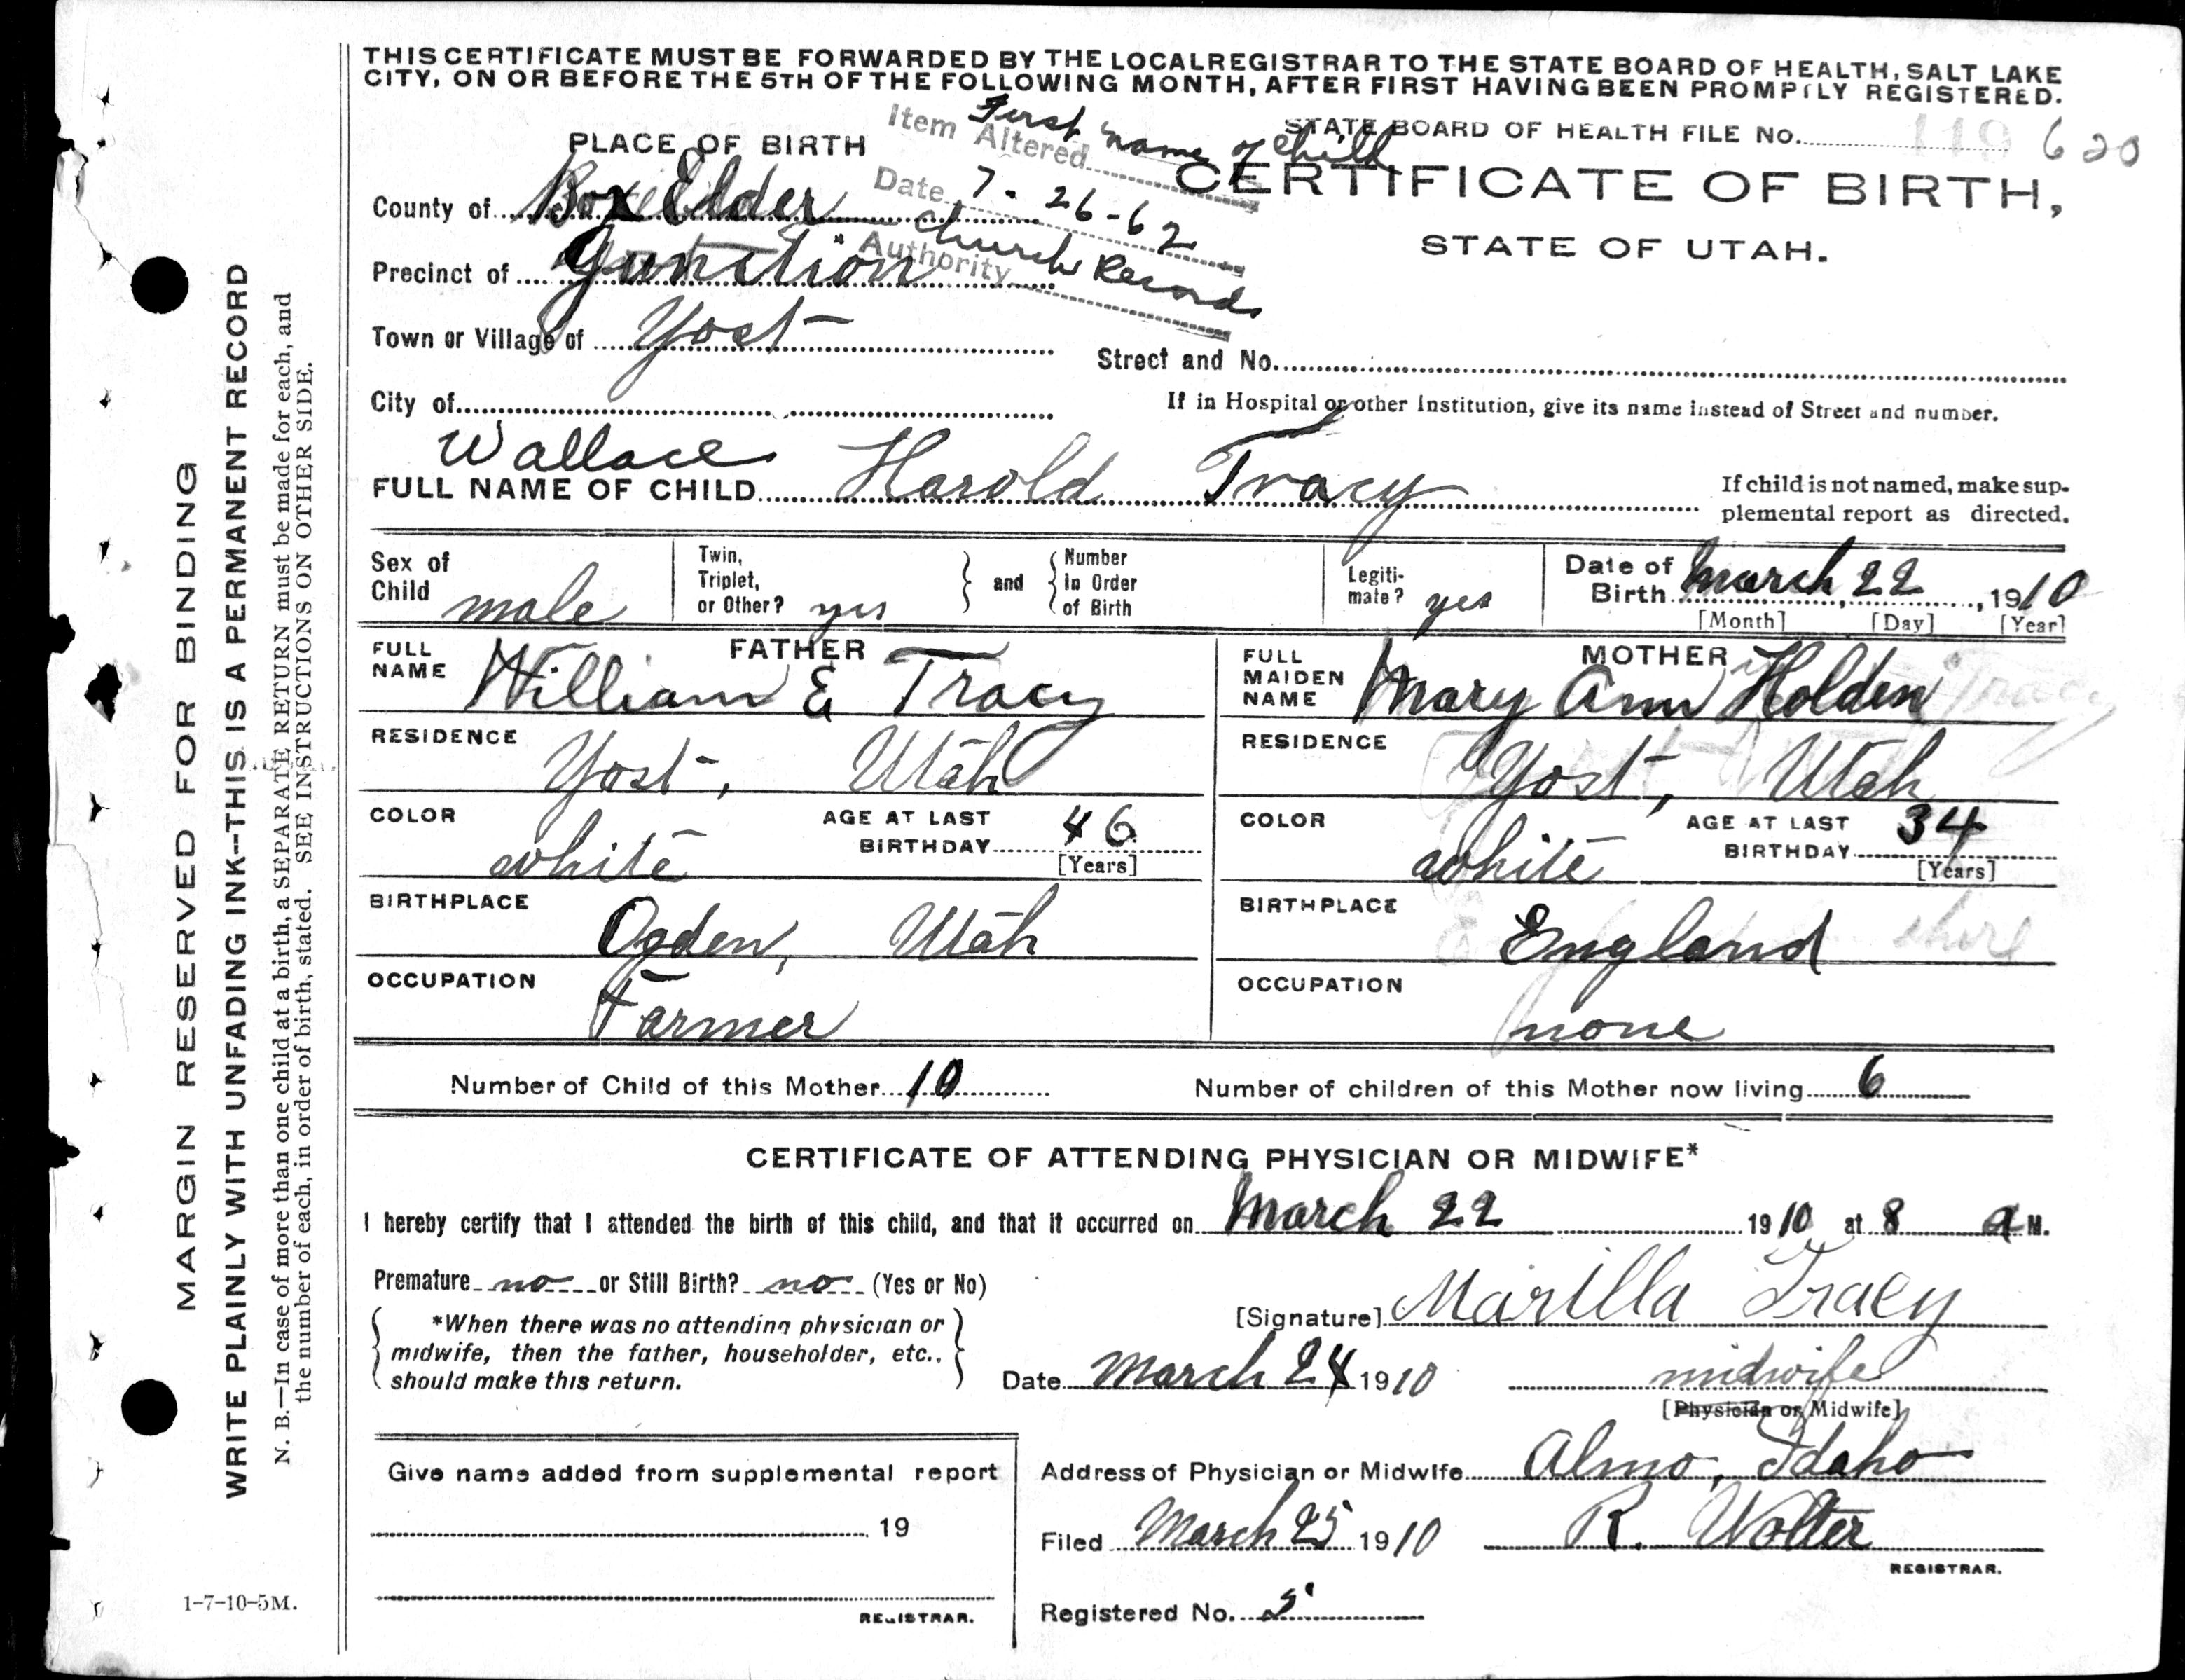 THIS CERTIFICATE MUST BE FORWARDED BY THE LOCAL REGISTRAR TO THE STATE BOARD OF HEALTH, SALT LAKE
CITY, ON OR BEFORE THE 5TH OF THE FOLLOWING MONTH, AFTER FIRST HAVING BEEN PROMPTLY REGISTERED.
Item Altered First name of child
Date 7-26-62
Authority Church Records
STATE BOARD OF HEALTH FILE No. 119 620
CERTIFICATE OF BIRTH,
STATE OF UTAH.
PLACE OF BIRTH
County of Box Elder
Precinct of Junction
Town or Village of Yost
Street and No.
City of
If in Hospital or other Institution, give its name instead of Street and number.
Wallace
FULL NAME OF CHILD Harold Tracy
If child is not named, make sup-
plemental report as directed.
Sex of Child male
Twin, Triplet, or Other? yes
and
Number in Order of Birth
Legiti-mate? yes
Date of Birth March 22, 1910
[Month] [Day] [Year]
FATHER
FULL NAME William E Tracy
RESIDENCE Yost, Utah
COLOR white
AGE AT LAST BIRTHDAY 46
[Years]
BIRTHPLACE Ogden, Utah
OCCUPATION Farmer
MOTHER
FULL MAIDEN NAME Mary Ann Holden Tracy
RESIDENCE Yost, Utah
COLOR white
AGE AT LAST BIRTHDAY 34
[Years]
BIRTHPLACE England shire
OCCUPATION none
Number of Child of this Mother 10
Number of children of this Mother now living 6
CERTIFICATE OF ATTENDING PHYSICIAN OR MIDWIFE*
I hereby certify that I attended the birth of this child, and that it occurred on March 22 1910 at 8 a M.
Premature no or Still Birth? no (Yes or No)
*When there was no attending physician or
midwife, then the father, householder, etc.,
should make this return.
[Signature] Marilla Tracy
Date March 24 1910
midwife
[Physician or Midwife]
Give name added from supplemental report
19
REGISTRAR.
Address of Physician or Midwife Almo, Idaho
Filed March 25 1910 R. Wolter
REGISTRAR.
Registered No. 5
MARGIN RESERVED FOR BINDING
WRITE PLAINLY WITH UNFADING INK--THIS IS A PERMANENT RECORD
N. B.—In case of more than one child at a birth, a SEPARATE RETURN must be made for each, and
the number of each, in order of birth, stated. SEE INSTRUCTIONS ON OTHER SIDE.
1-7-10-5M.